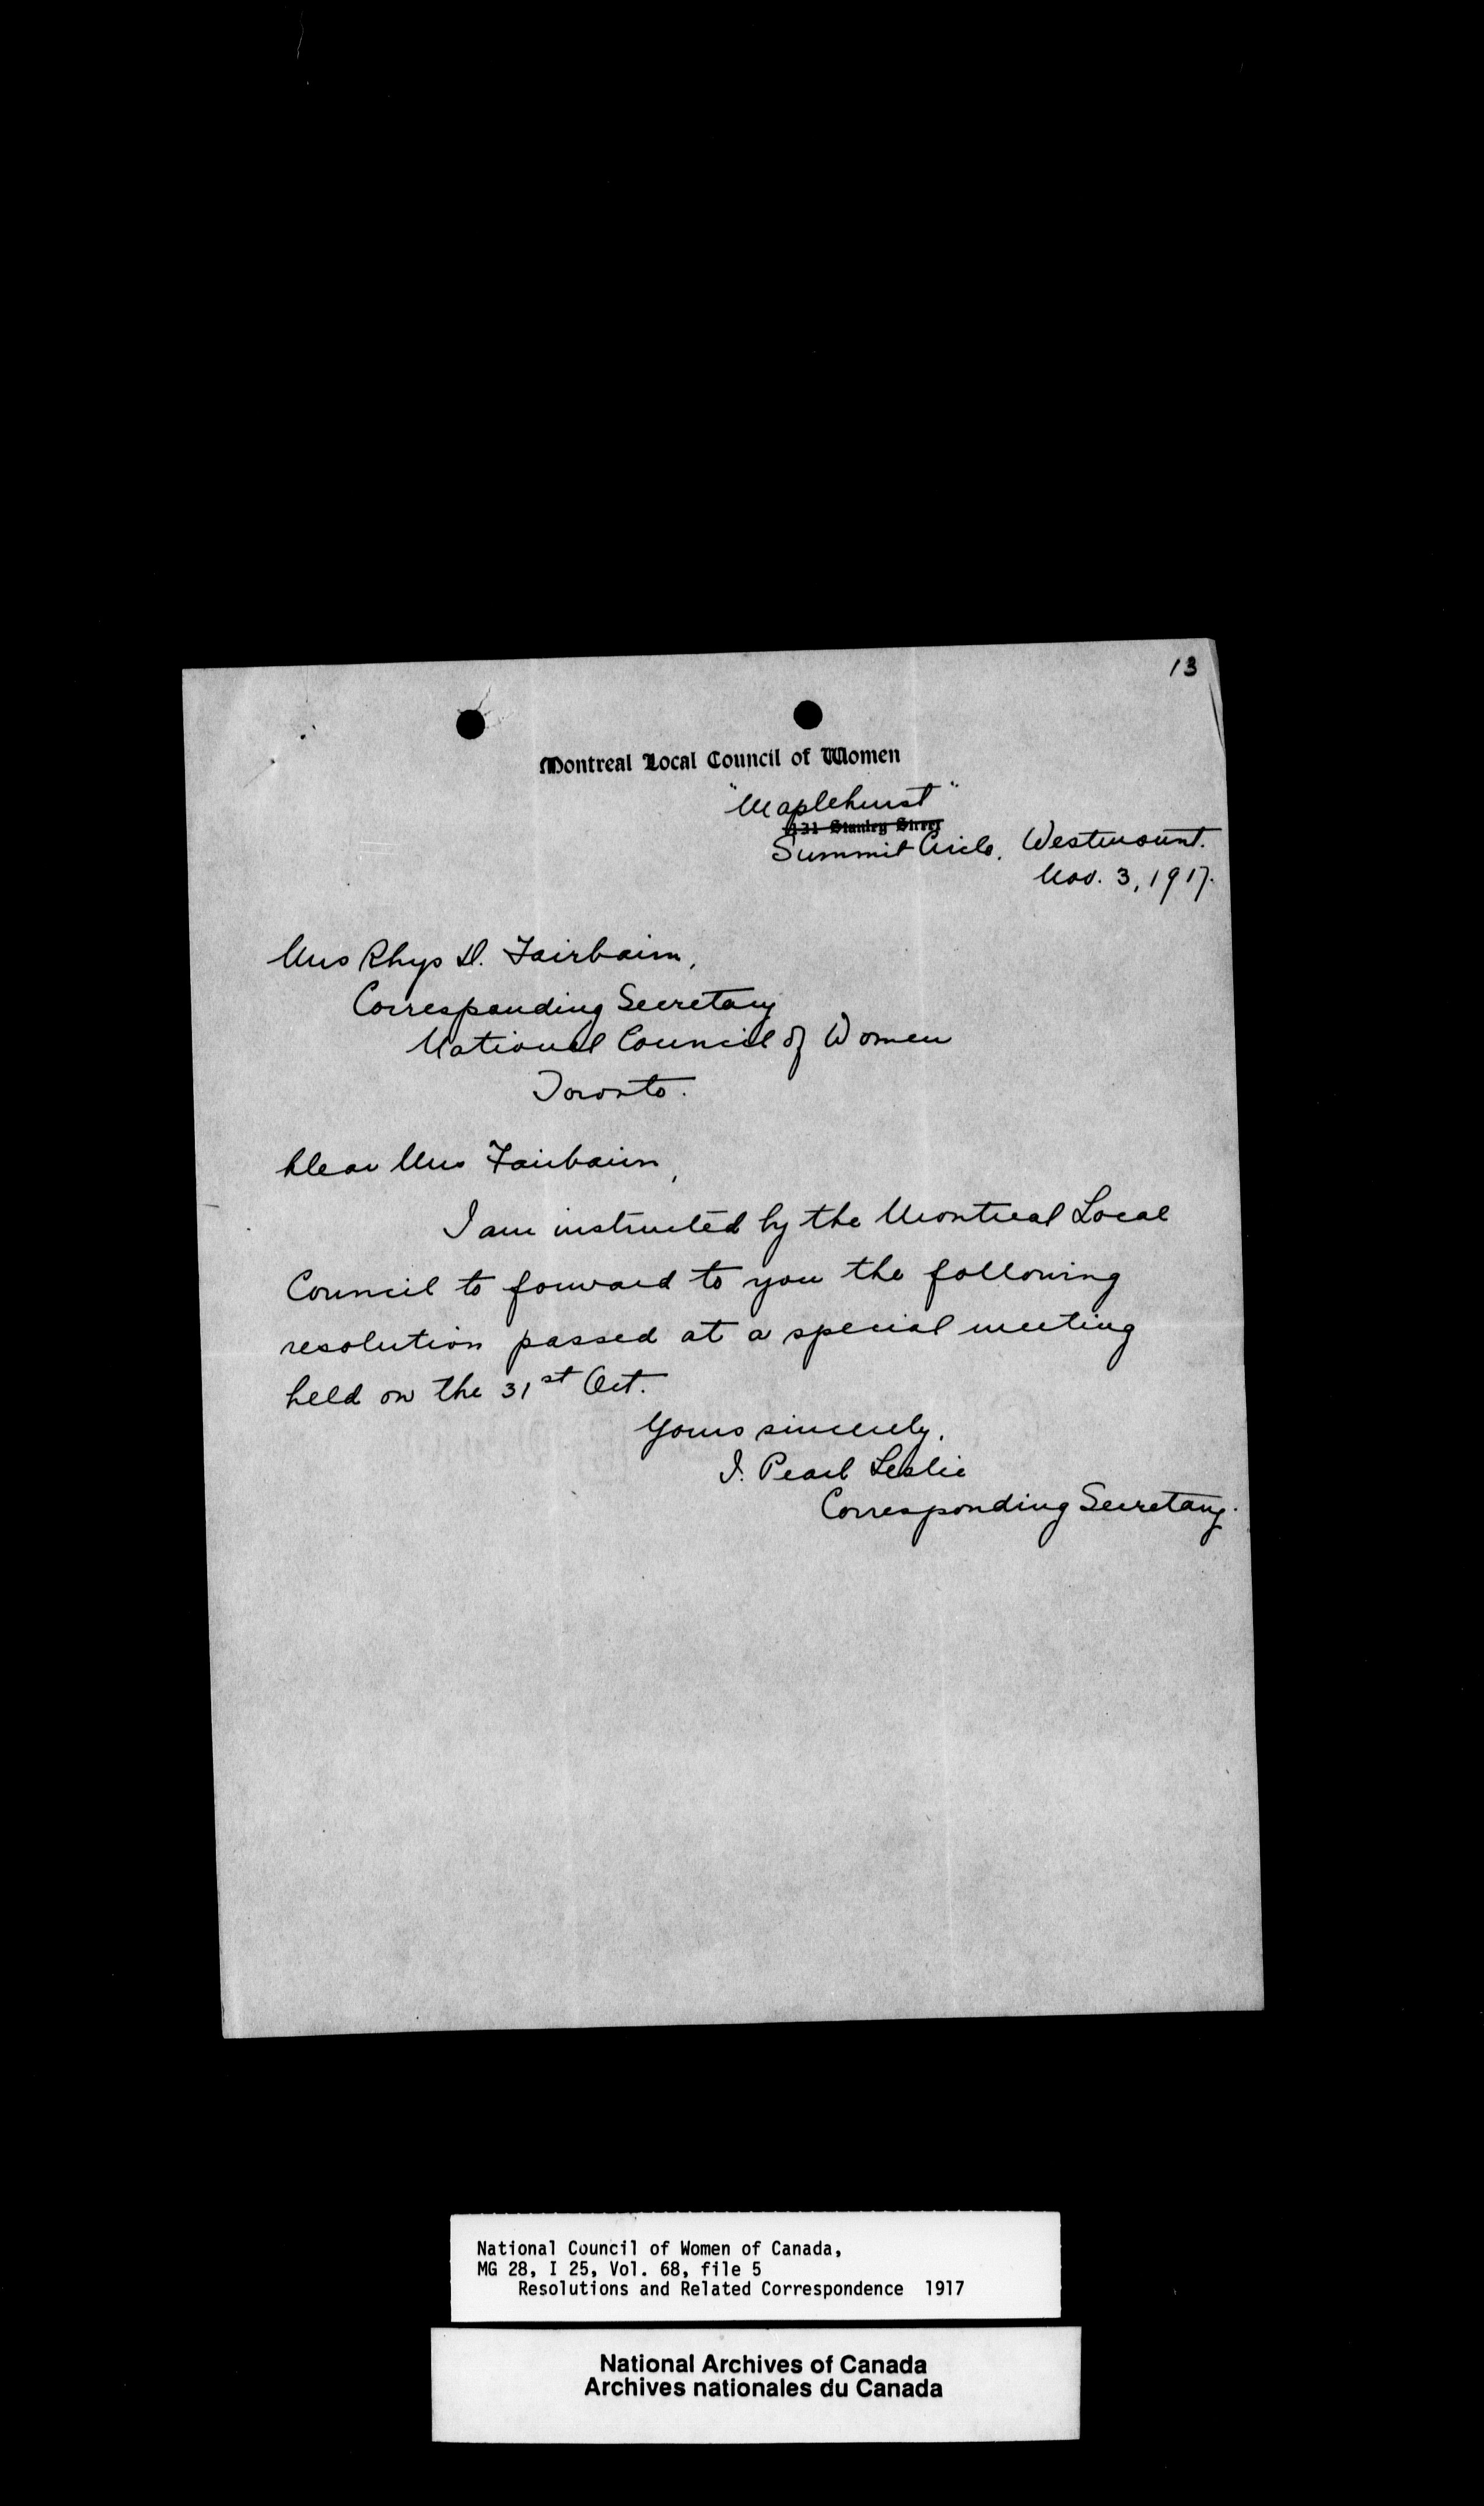 13
Montreal Local Council of Women
"Maplehurst"
Stanley Street
Summit Circle, Westmount.
Nov. 3, 1917.
Mrs Rhys D. Fairbairn,
Corresponding Secretary
National Council of Women
Toronto.
Dear Mrs Fairbairn,
I am instructed by the Montreal Local
Council to forward to you the following
resolution passed at a special meeting
held on the 31st Oct.
Yours sincerely,
I. Pearl Leslie
Corresponding Secretary.
National Council of Women of Canada,
MG 28, I 25, Vol. 68, file 5
Resolutions and Related Correspondence 1917
National Archives of Canada
Archives nationales du Canada